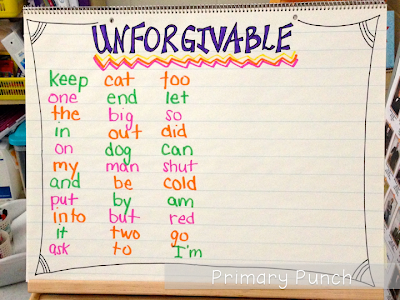 UNFORGIVABLE
keep cat too
one end let
the big so
in out did
on dog can
my man shut
and be cold
put by am
into but red
it two go
ask to I'm
Primary Punch